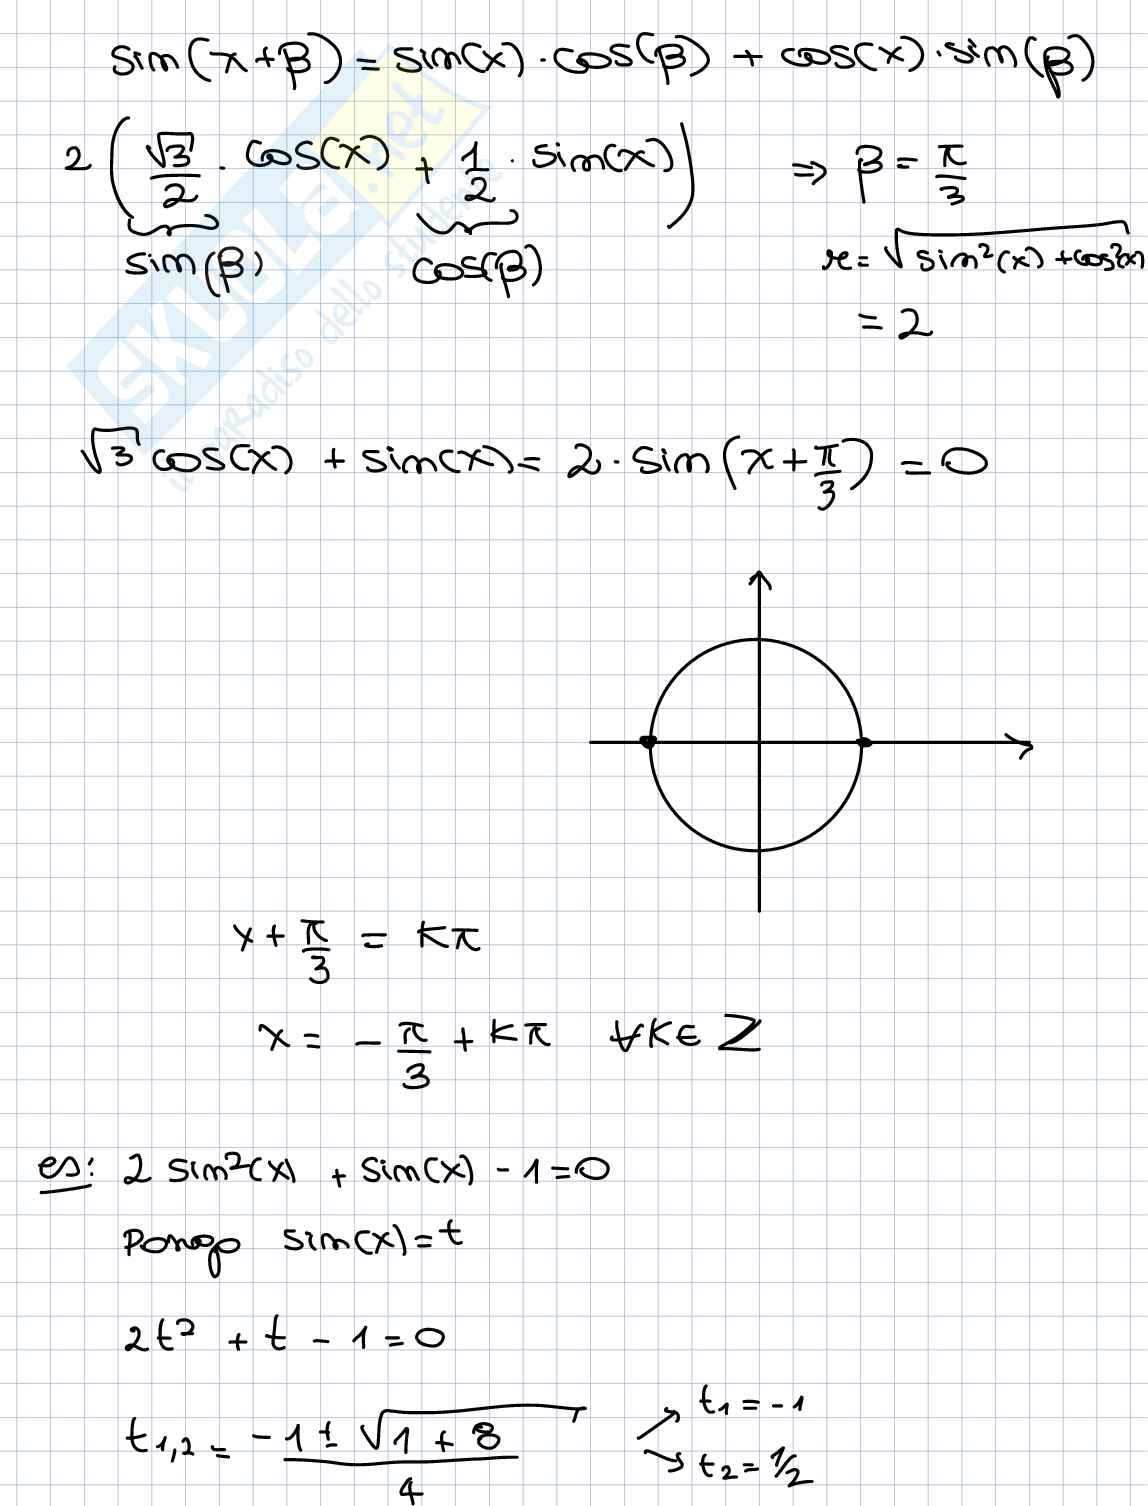 sin(x+β) = sin(x)·cos(β) + cos(x)·sin(β)
2 (√3/2 · cos(x) + 1/2 · sin(x)) ⇒ β = π/3
sin(β) cos(β) r = √(sin²(x) + cos²(x))
= 2
√3 cos(x) + sin(x) = 2·sin(x + π/3) = 0
x + π/3 = kπ
x = -π/3 + kπ ∀k∈Z
es: 2 sin²(x) + sin(x) - 1 = 0
Pongo sin(x) = t
2t² + t - 1 = 0
t1,2 = (-1 ± √(1 + 8))/4
t1 = -1
t2 = 1/2
SKUOLA.net
dello studente